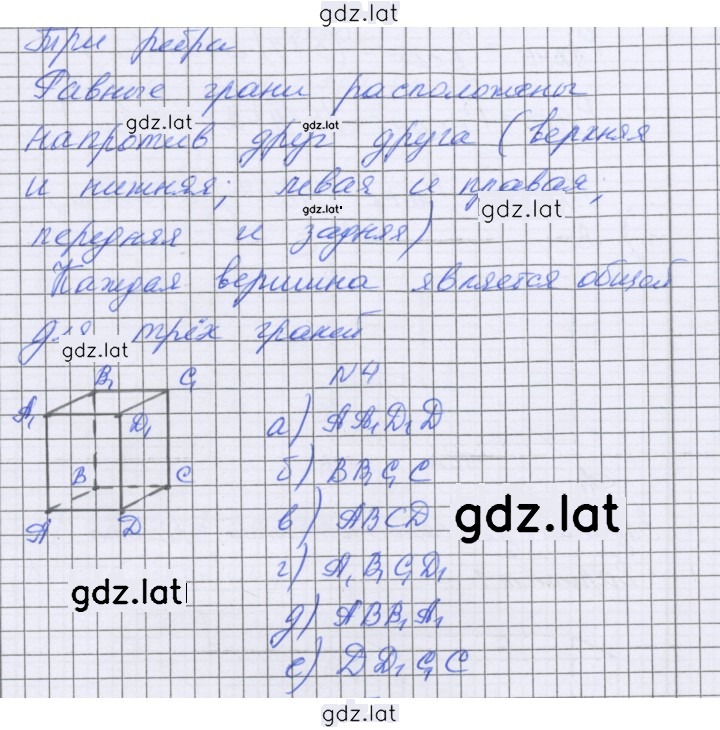 gdz.lat
Три ребра
Равные грани расположены
gdz.lat gdz.lat
напротив друг друга (верхняя
и нижняя; левая и правая;
gdz.lat gdz.lat
передняя и задняя)
Каждая вершина является общей
для трёх граней
gdz.lat
B₁ C₁ N4
A₁ D₁ а) AA₁D₁D
B C б) BB₁C₁C
A D в) ABCD gdz.lat
г) A₁B₁C₁D₁
gdz.lat
д) ABB₁A₁
е) DD₁C₁C
gdz.lat